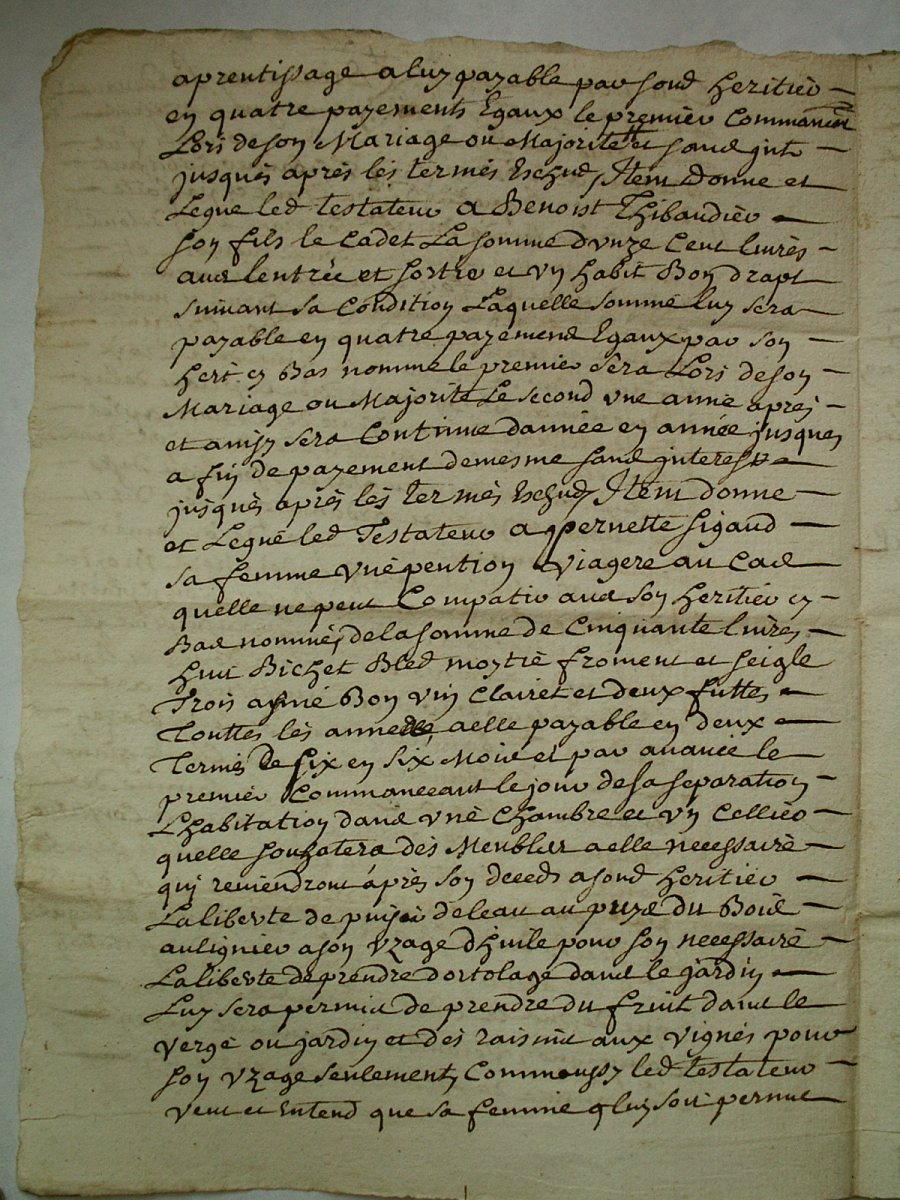 aprentissage a luy payable par sond heritier
en quatre payements Egaux le premier Commancant
Lors de son Mariage ou Majorite et sand jnt
jusques après lès termès Eschud, Jtem Donne et
Legue led testateur a Benoist Thibaudier
son fils le Cadet La somme dunze Cent livrès
aud lentrée et sortie et un habit Bon drapt
suivant sa Condition Laquelle sommè luy sera
payable en quatre payemend Egaux par son
herit en Bas nomme le premier sera Lors de son
Mariage ou Majorite Le second vne anné aprés
et ainsy sera Continué dannée en année jusques
a fin de payement de mesme sand jnterest
jusquès après lès termès Eschud, Jtem donne
et Legue led Testateur a pernette sigaud
sa femme vnè pention Viagere au Cad
quelle ne peut Compatir aud son heritier en
Bad nommé, de la somme de Cinquante livres
huit Bichet Bled moytié froment et seigle
Trois asnié Bon vin Clairet et deux futtes
Touttes lès anneès, a elle payable en deux
Termes de six en six Moid et par avancé le
premier Commanceant le jour de sa separation
Lhabitation dand vnè Chambre et vn Cellier
quelle souhatera dès Meublet a elle necessairè
qui reviendront après son deceds a sond heritier
La liberte de puiser de leau au puyd du Boid
aulignier a son vzage dhuile pour son necessairè
La liberte de prendre dortolage dand le jardin
Luy sera permid de prendre du fruit dand le
vergé ou jardin et dès raisind aux vignés pour
son vzage seulement, Comme aussy led testateur
veut et Entend que sa femme q luy soit permit